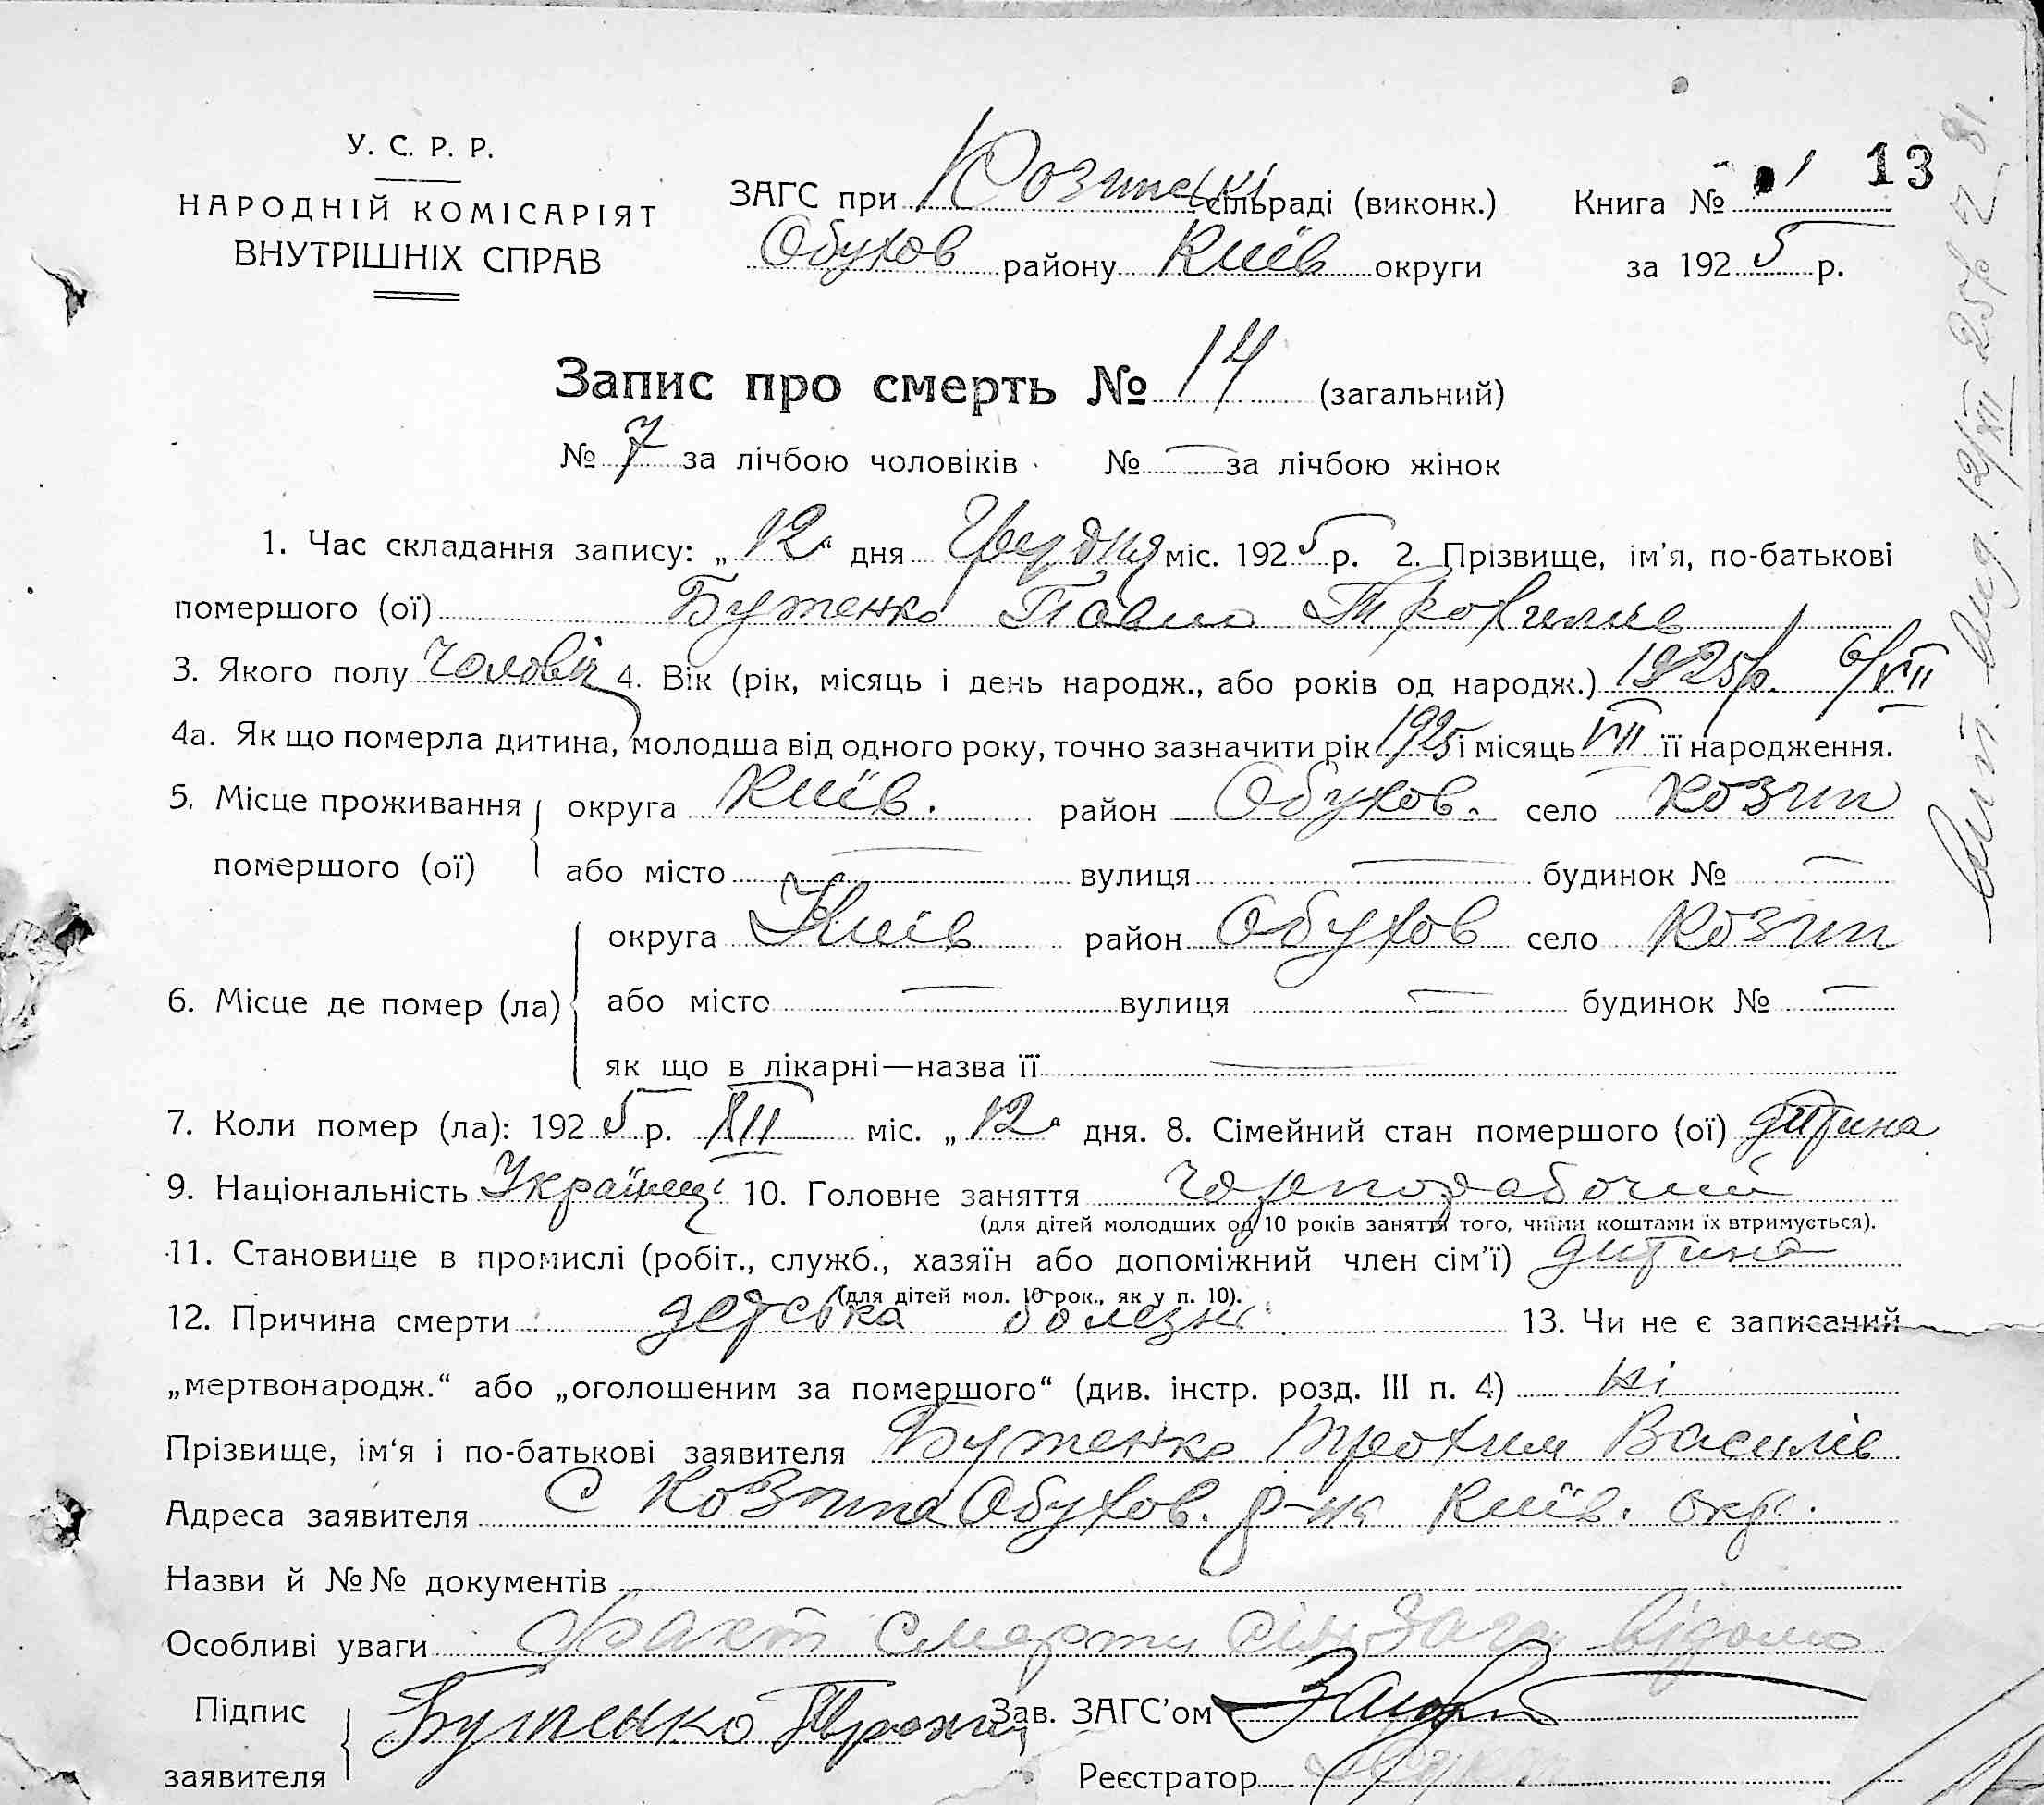 У. С. Р. Р.
НАРОДНІЙ КОМІСАРІЯТ
ВНУТРІШНІХ СПРАВ
ЗАГС при Козинські сільраді (виконк.)
Обухов району Київ округи
Книга № 1 13
за 1925 р.
Запис про смерть № 14 (загальний)
№ 7 за лічбою чоловіків № — за лічбою жінок
1. Час складання запису: „12“ дня Грудня міс. 1925 р. 2. Прізвище, ім'я, по-батькові
помершого (ої) Бутенко Павло Трохимів
3. Якого полу чоловіч 4. Вік (рік, місяць і день народж., або років од народж.) 1925 р. 6/VII
4а. Як що померла дитина, молодша від одного року, точно зазначити рік 1925 і місяць VII її народження.
5. Місце проживання округа Київ. район Обухов. село Козин
помершого (ої) або місто — вулиця — будинок № —
округа Київ район Обухов село Козин
6. Місце де помер (ла) або місто — вулиця — будинок № —
як що в лікарні—назва її —
7. Коли помер (ла): 1925 р. XII міс. „12“ дня. 8. Сімейний стан помершого (ої) дитина
9. Національність Українец 10. Головне заняття чорнорабочий
(для дітей молодших од 10 років заняття того, чиїми коштами їх втримується).
11. Становище в промислі (робіт., служб., хазяїн або допоміжний член сім'ї) дитина
(для дітей мол. 10 рок., як у п. 10).
12. Причина смерти детська болезні 13. Чи не є записаний
„мертвонародж.“ або „оголошеним за помершого“ (див. інстр. розд. III п. 4) ні
Прізвище, ім'я і по-батькові заявителя Бутенко Трохим Василів
Адреса заявителя С Козина Обухов. р-на Київ. окр.
Назви й №№ документів
Особливі уваги Факт смерти сільзага відомо
Підпис заявителя Бутенко Трохим
Зав. ЗАГС'ом
Реєстратор
12/XII 25 р. Z 81.